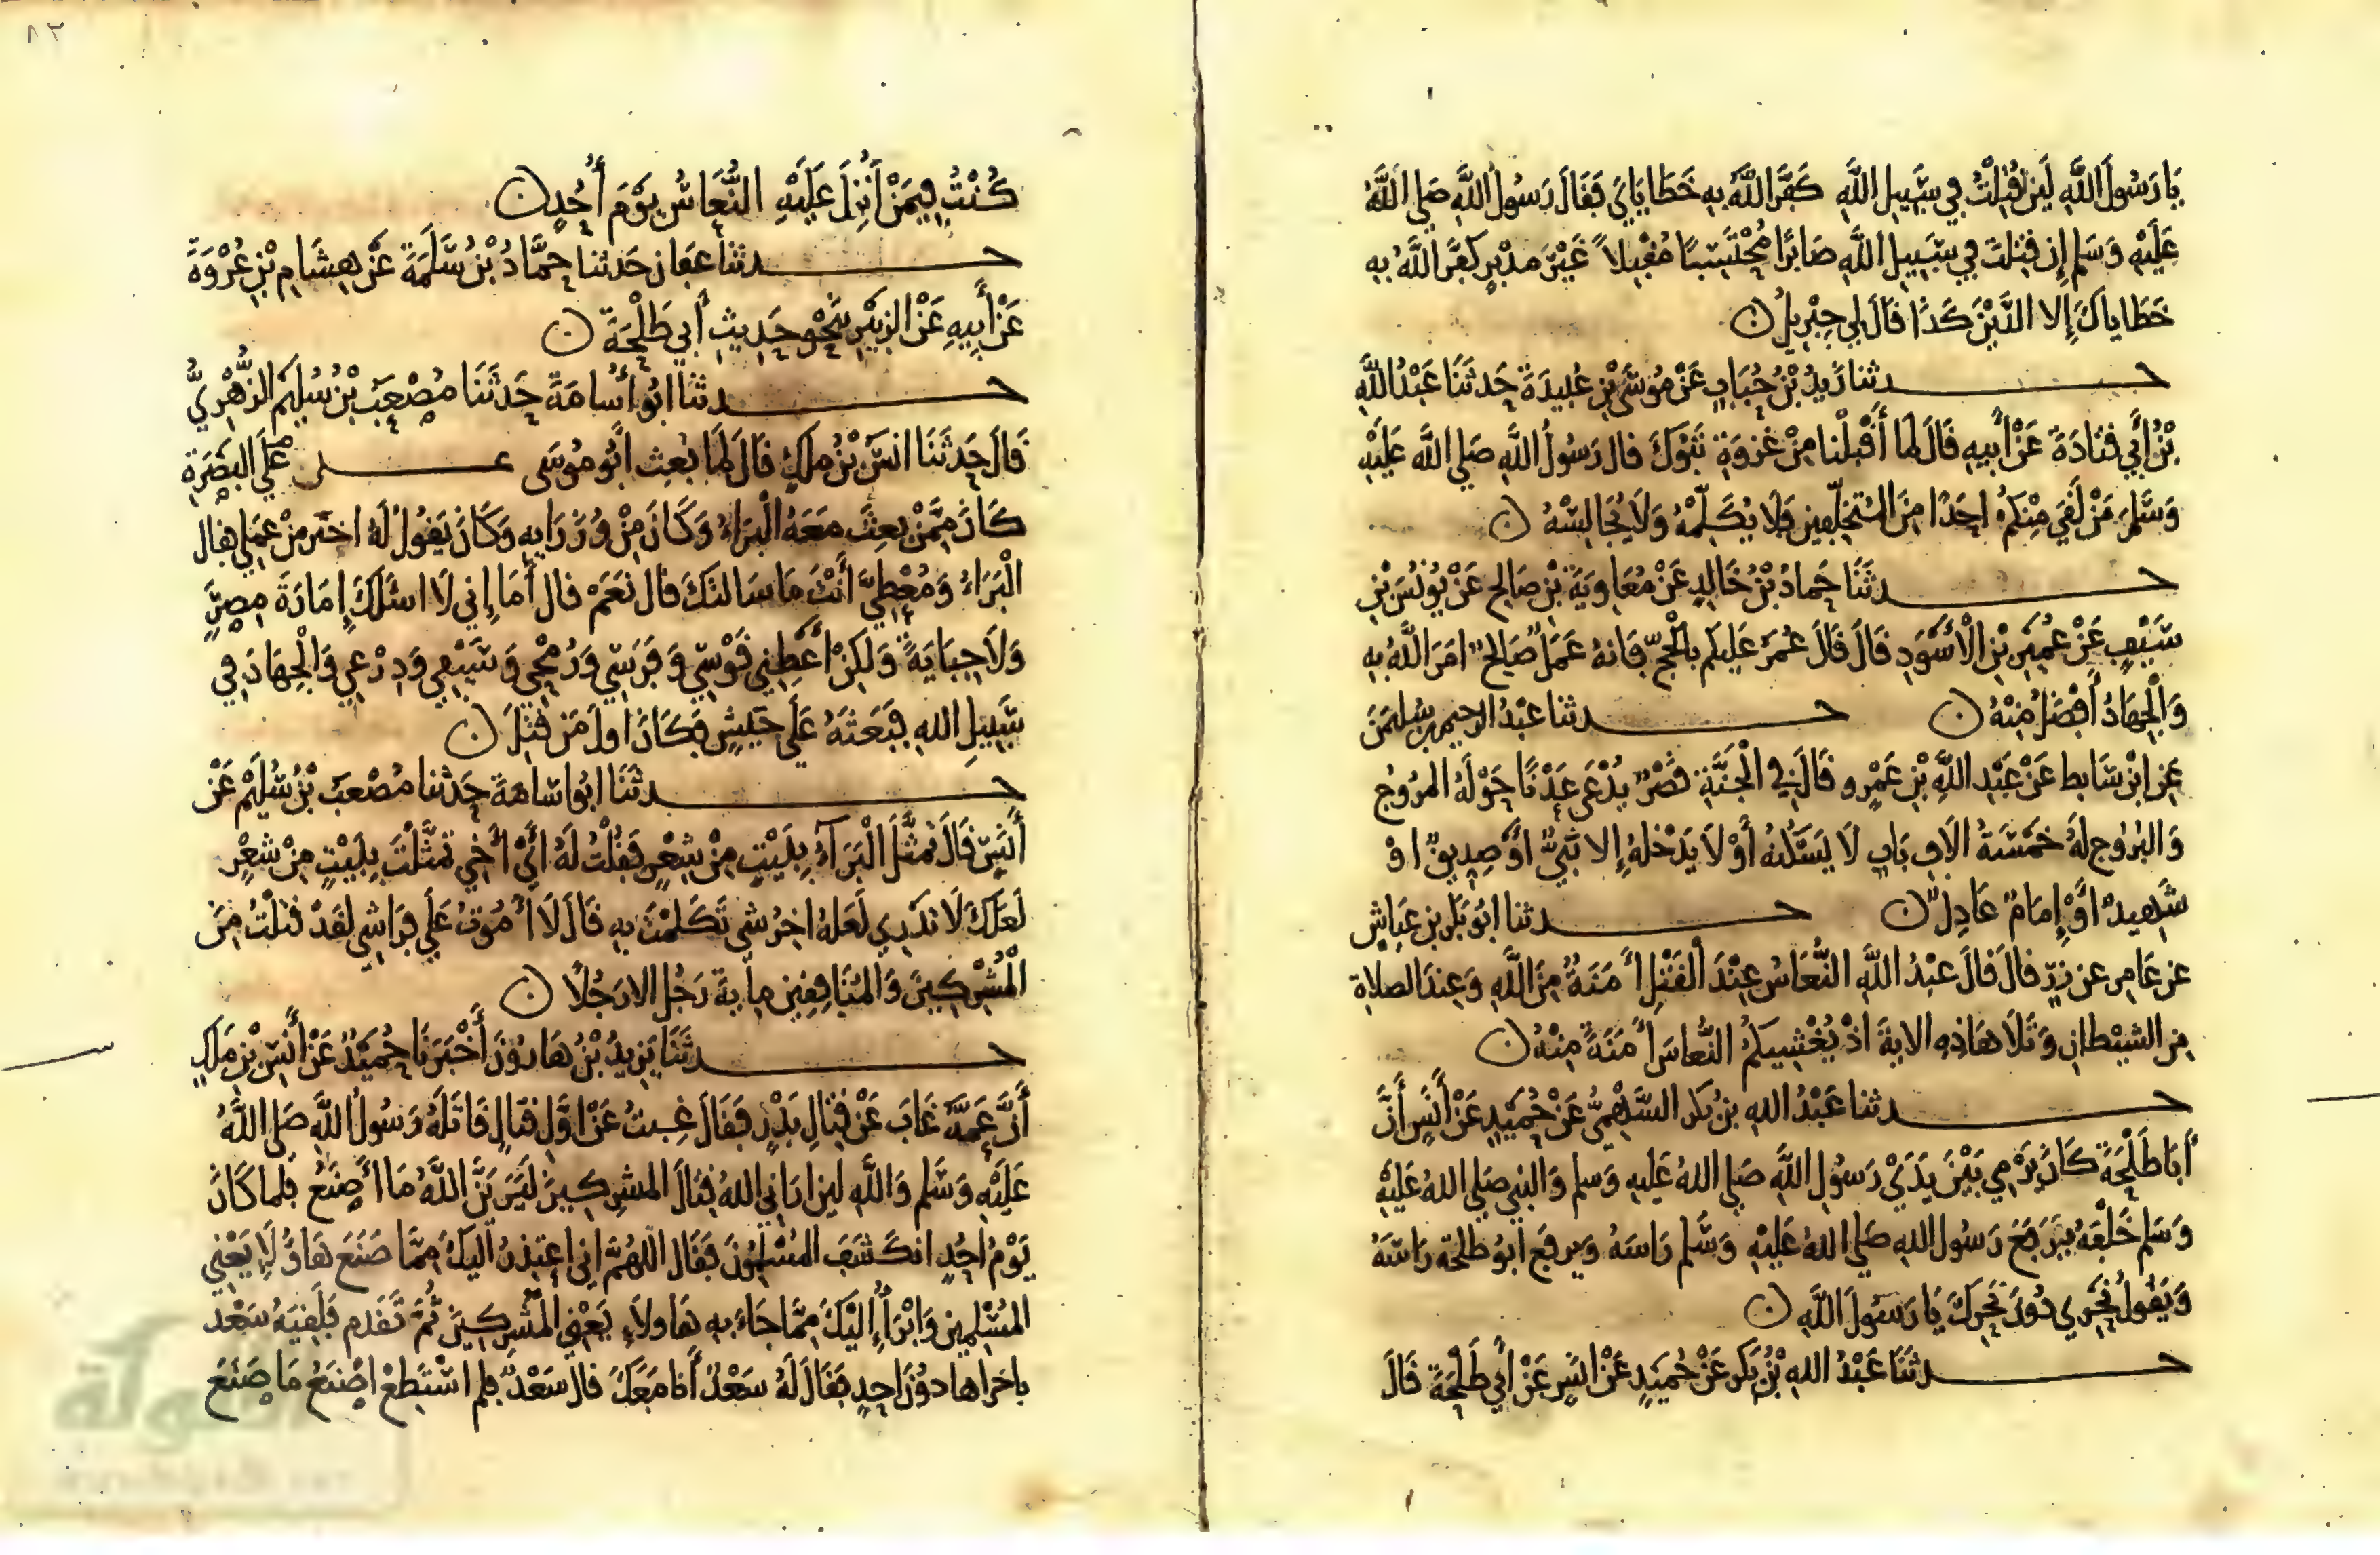 يَا رَسُولَ اللَّهِ لَئِن قُتِلْتُ فِي سَبِيلِ اللَّهِ كَفَّرَ اللَّهُ بِهِ خَطَايَايَ فَقَالَ رَسُولُ اللَّهِ صَلى اللَّهُ
عَلَيْهِ وَسَلم إِن قُتِلتَ فِي سَبِيلِ اللَّهِ صَابِرًا مُحْتَسِبًا مُقْبِلاً غَيْرَ مدْبِرٍ كَفَّرَ اللَّهُ بِهِ
خَطَاياكَ إِلا الدَّيْنَ كَذَا قَالَ لِي جِبْرِيلُ ن
حدثنا زَيدُ بْنُ حُبَابٍ عَنْ مُوسَى بْنِ عُبيدَةَ حَدثَنَا عَبْدُ اللَّهِ
بْنُ أَبِي قتَادَةَ عَنْ أَبِيهِ قَالَ لمَا أَقْبلْنا مِنْ غزوَةِ تَبُوكَ قال رَسُولُ اللَّهِ صَلى اللَّه عَلَيْهِ
وَسَلمَ مَنْ لَقِيَ مِنْكُمْ احَدًا مِنَ المُتخَلِّفِين فَلَا يُكَلِّمْهُ وَلَا يُجَالِسْهُ ن
حدثَنَا حَمادُ بْنُ خَالِدٍ عَنْ مُعَاويَةَ بْنِ صَالِحٍ عَنْ يُونُسَ بْنِ
سَيْفٍ عَنْ عُمَيْرِ بْنِ الْأَسْوَدِ قَالَ قَالَ عُمَرُ عَلَيكُم بالْحَجّ فَانهُ عَمَلٌ صَالِحٌ امَرَ اللَّهُ بِهِ
وَالْجِهَادُ أَفْضَلُ مِنْهُ ن حدثنا عَبْدُ الرحيم بن سُليمَنَ
عَنِ ابْنِ سَابِط عَنْ عَبْدِ اللَّهِ بْنِ عَمْرٍو قَالَ فِي الْجَنَّةِ قَصْرٌ يُدْعَى عَدْنًا حَوْلَهُ المُرُوجُ
وَالبُرُوجُ لَهُ خَمْسَةُ الَافِ بَابٍ لَا يَسْكُنُهُ أَوْ لَا يَدْخلهُ إِلا نَبِيٌّ اوْ صِدِيقٌ اوْ
شَهِيدٌ اوْ إِمَامٌ عَادِلٌ ن حدثنا ابُو بَكر بن عَيَاشٍ
عن عَامِر عن زِرٍّ قالَ قَالَ عبْدُ اللَّهِ النُّعَاسُ عِنْدَ الْقَتْلِ أَمَنَةٌ مِنَ اللَّهِ وَعِندَ الصلاةِ
مِن الشيْطانِ وَتَلَا هَاذِهِ الايةَ اذْ يُغْشِيكُمُ النُّعاسَ أَمَنَةً مِنْهُ ن
حدثنا عَبْدُ اللهِ بنُ بَكر السَّهْمِيُّ عَنْ حُمَيْدٍ عَنْ أَنَسٍ أَنَّ
أَبَا طَلْحَةَ كَانَ يَرْمِي بَيْنَ يَدَيْ رَسُولِ اللَّهِ صَلى اللهُ عَلَيهِ وَسلم وَالنبي صَلى اللهُ عَلَيْهِ
وَسَلم خَلْفَهُ فيَرفَعُ رَسُول اللهِ صَلى اللهُ عَلَيْهِ وَسَّلم رَاسَهُ وَيرفَع ابُو طَلحَة رَاسَهُ
وَيَقُولُ نَحْرِي دُونَ نَحْرِكَ يَا رَسُولَ اللَّهِ ن
حدثَنَا عَبْدُ اللهِ بْنُ بَكر عَنْ حُمَيدٍ عَنْ انَسٍ عَنْ أَبِي طَلْحَةَ قَالَ
٨٣
كُنْتُ فِيمَنْ أُنْزِلَ عَلَيْهِ النُّعَاسُ يَوْمَ أُحُدٍ ن
حدثنا عَفان حَدثنا حَمَّادُ بْنُ سَلَمَةَ عَنْ هِشَامِ بْنِ عُرْوَةَ
عَنْ أَبِيهِ عَنْ الزبَيْرِ نَحْو حَدِيثِ أَبِي طَلْحَةَ ن
حدثنا ابُو أُسَامَةَ حَدثَنَا مُصْعَبُ بْنُ سُلَيم الزُّهْرِيُّ
قَالَ حَدثَنَا انسُ بْنُ ملكٍ قَالَ لمَا بُعِث ابُو مُوسَى عَلى عَلَى البَصْرَةِ
كَانَ مِمَّنْ بعِثَ مَعَهُ الْبَرَاءُ وَكَانَ مِنْ وُزَرَايِهِ وَكَانَ يَقُولُ لَهُ اختَر مِنْ عَمَلِي فقال
الْبَرَاءُ وَمُعْطِيَّ أَنْتَ مَا سَالتكَ قال نَعَمْ قال أَمَا إِني لَا اسْئَلكَ إِمَارَةَ مِصْرٍ
وَلَا جِبَايَةً وَلَكِنْ أَعْطِنِي قَوْسِي وَفَرَسِي وَرُمْحِي وَسَيْفِي وَدِرْعِي وَالْجِهَادَ فِي
سَبِيلِ اللهِ فبَعَثَهُ عَلَى جَيْشٍ فَكَانَ اولَ مَن قُتِلَ ن
حدثَنَا ابُو اسَامَةَ حَدثنا مُصْعَبُ بْنُ سُلَيْم عَنْ
أَنَسٍ قَالَ تَمثَّلَ الْبَرَآءُ بِبَيْتٍ مِنْ شِعْرٍ فَقُلْتُ لَهُ ايْ أَخِي تمَثَّلْتَ بِبَيْتٍ مِنْ شِعْرٍ
لَعَلكَ لَا تَدْرِي لَعَلهُ اخِرُ شي تَكَلمْتَ بهِ قَالَ لَا أَمُوتُ عَلَى فِرَاشِي لقَدْ قتَلْتُ مِنَ
الْمُشْرِكِينَ وَالمُنَافِقِين مِايةَ رَجُلٍ الا رَجُلًا ن
حدثَنَا يَزِيدُ بْنُ هَارُونَ أَخْبَرَنَا حُمَيْدٌ عَنْ أَنَسِ بْنِ ملكٍ
أَنَّ عَمَّهُ غَابَ عَنْ قِتَالِ بَدْرٍ فَقَالَ غِبتُ عَنْ اوَّلِ قتَالٍ قَاتَلَهُ رَسُولُ اللَّهِ صَلى اللَّهُ
عَلَيْهِ وَسَلم وَاللَّهِ لَين ارَانِي اللهُ قِتَالَ المشرِكِينَ لَيَرَيَنَّ اللَّهُ مَا أَصْنَعُ فلما كَانَ
يَوْمُ احُدٍ انكَشَفَ المُسْلِمُونَ فَقَال اللهُمَّ اني اعْتَذرُ الَيكَ مِمَّا صَنَعَ هَاوُلَاءِ يَعْنِي
المُسْلِمِين وَابْرَأُ إِلَيْكَ مِمَّا جَاءَ بِهِ هَاولَاءِ يَعْنِي المُشْرِكِينَ ثُمَّ تَقَدم فَلَقِيَهُ سَعْد
باخرَاها دُونَ احدٍ فَقَالَ لَهُ سَعْدٌ أَنا مَعَكَ قال سَعْدٌ فلم اسْتَطعْ اصْنَعُ مَا صَنَعَ